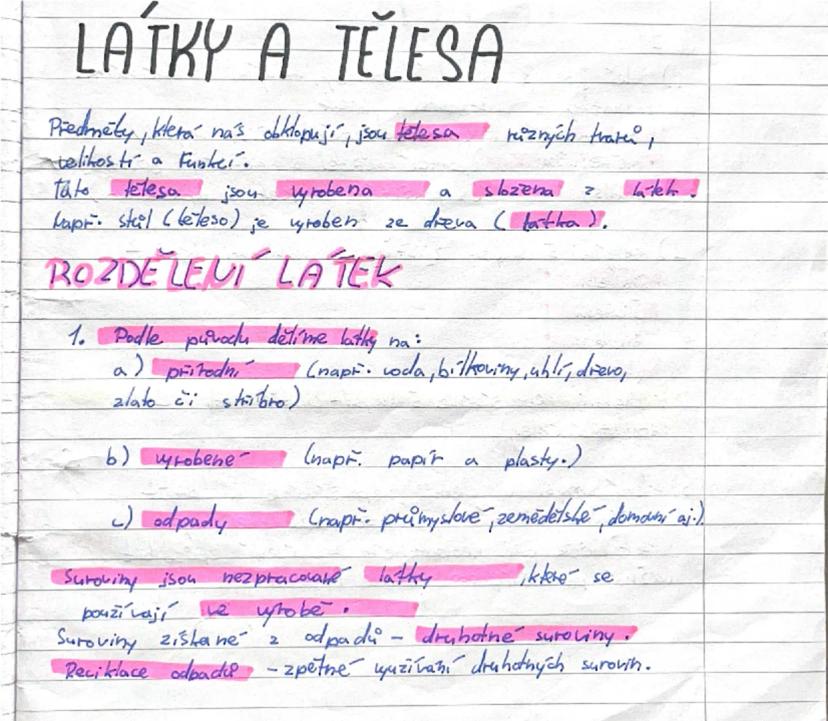 LÁTKY A TĚLESA
Předměty, která nás obklopují, jsou tělesa různých tvarů,
velikostí a funkcí.
Tato tělesa jsou vyrobena a složena z látek.
Např. stůl (těleso) je vyroben ze dřeva (látka).
ROZDĚLENÍ LÁTEK
1. Podle původu dělíme látky na:
a) přírodní (např. voda, bílkoviny, uhlí, dřevo,
zlato či stříbro)
b) vyrobené (např. papír a plasty.)
c) odpady (např. průmyslové, zemědělské, domovní aj.)
Suroviny jsou nezpracované látky, které se
používají ve výrobě.
Suroviny získané z odpadů - druhotné suroviny.
Reciklace odpadů - zpětné využívání druhotných surovin.